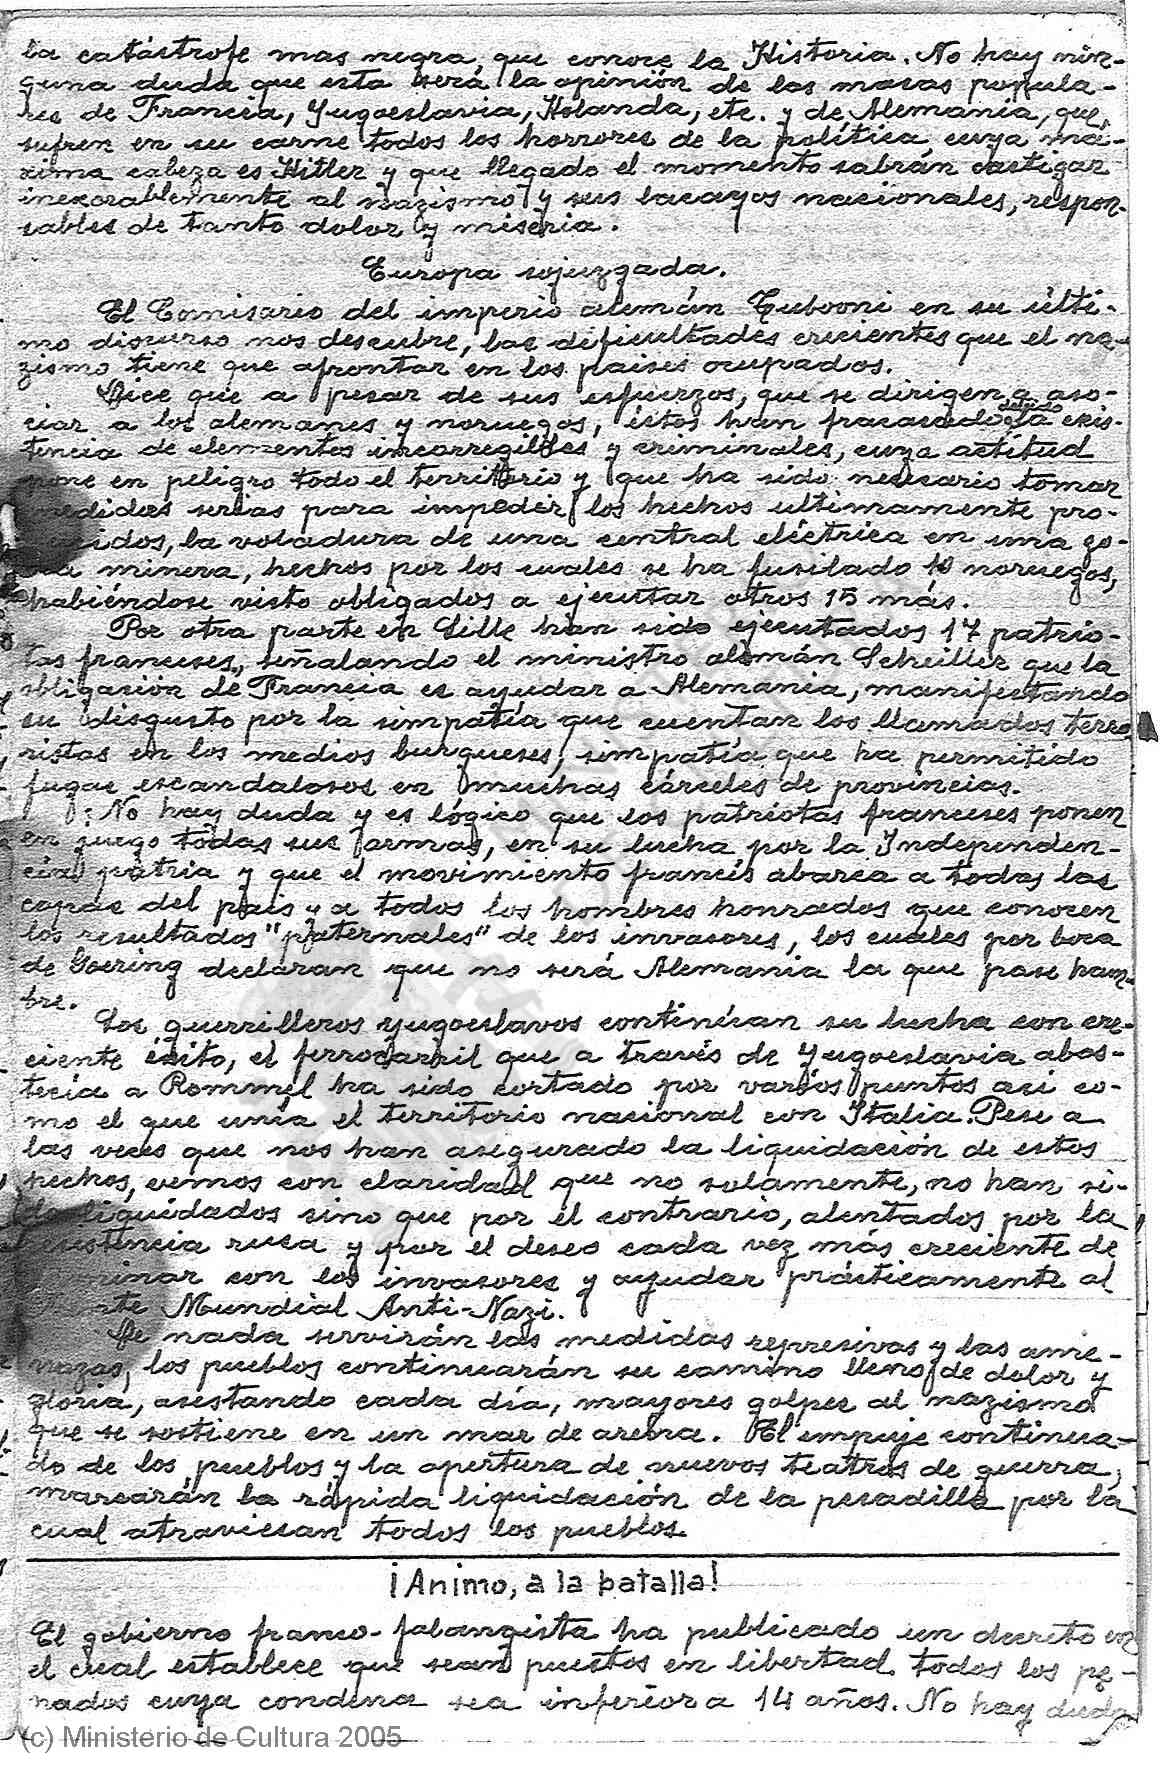 la catástrofe mas negra, que conoce la Historia. No hay nin-
guna duda que esta será la opinión de las masas popula-
res de Francia, Yugoeslavia, Holanda, etc. y de Alemania, que
sufren en su carne todos los horrores de la política, cuya má-
xima cabeza es Hitler y que llegado el momento sabrán castigar
inexorablemente al nazismo y sus lacayos nacionales, respon-
sables de tanto dolor y miseria.
Europa sojuzgada.
El Comisario del imperio alemán en su últi-
mo discurso nos descubre, las dificultades crecientes que el na-
zismo tiene que afrontar en los paises ocupados.
Dice que a pesar de sus esfuerzos, que se dirigen a aso-
ciar a los alemanes y noruegos, éstos han fracasado debido a exis-
tencia de elementos incorregibles y criminales, cuya actitud
pone en peligro todo el territorio y que ha sido necesario tomar
medidas serias para impedir los hechos ultimamente pro-
ducidos, la voladura de una central eléctrica en una zo-
na minera, hechos por los cuales se ha fusilado 10 noruegos,
habiéndose visto obligados a ejecutar otros 15 más.
Por otra parte en Lille han sido ejecutados 17 patrio-
tas franceses, señalando el ministro alemán que la
obligación de Francia es ayudar a Alemania, manifestando
su disgusto por la simpatía que cuentan los llamados terro
ristas en los medios burgueses, simpatía que ha permitido
fugas escandalosos en muchas cárceles de provincias.
No hay duda y es lógico que los patriotas franceses ponen
en juego todas sus armas, en su lucha por la Independen-
cia patria y que el movimiento francés abarca a todas las
capas del pais y a todos los hombres honrados que conocen
los resultados "paternales" de los invasores, los cuales por boca
de Goering declaran que no será Alemania la que pase ham-
bre.
Los guerrilleros yugoeslavos continúan su lucha con cre-
ciente éxito, el ferrocarril que a través de Yugoeslavia abas-
tecía a Rommel ha sido cortado por varios puntos asi co-
mo el que unía el territorio nacional con Italia. Pese a
las veces que nos han asegurado la liquidación de estos
hechos, vemos con claridad que no solamente, no han si-
do liquidados sino que por el contrario, alentados por la
resistencia rusa y por el deseo cada vez más creciente de
terminar con los invasores y ayudar prácticamente al
Frente Mundial Anti-Nazi.
De nada servirán las medidas represivas y las ame-
nazas, los pueblos continuarán su camino lleno de dolor y
gloria, asestando cada día, mayores golpes al nazismo
que se sostiene en un mar de arena. El empuje continua-
do de los pueblos y la apertura de nuevos teatros de guerra,
marcarán la rápida liquidación de la pesadilla por la
cual atraviesan todos los pueblos.
¡Animo, a la batalla!
El gobierno franco-falangista ha publicado un decreto en
el cual establece que sean puestos en libertad todos los pe-
nados cuya condena sea inferior a 14 años. No hay duda
(c) Ministerio de Cultura 2005